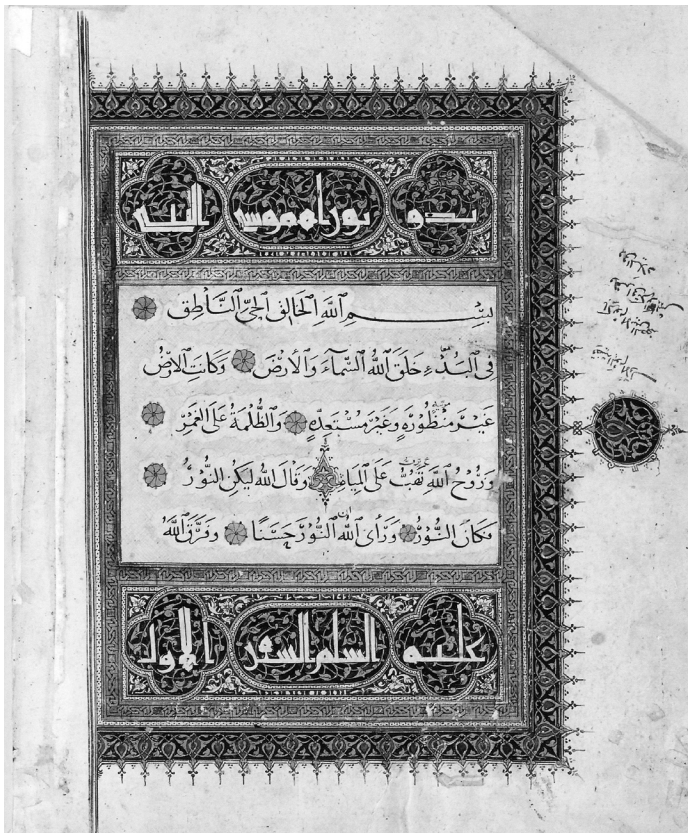 بدو توراه موسى النبي
بِسْمِ ٱللَّهِ ٱلْخَالِقِ ٱلْحَيِّ ٱلنَّاطِقِ
فِي ٱلْبَدْءِ خَلَقَ ٱللَّهُ ٱلسَّمَآءَ وَٱلْأَرْضَ وَكَانَتِ ٱلْأَرْضُ
غَيْرَ مَنْظُورَةٍ وَغَيْرَ مُسْتَعِدَّةٍ وَٱلظُّلْمَةُ عَلَى ٱلْغَمْرِ
وَرُوحُ ٱللَّهِ تَهُبُّ عَلَى ٱلْمِيَاهِ وَقَالَ ٱللَّهُ لِيَكُنِ ٱلنُّورُ
فَكَانَ ٱلنُّورُ وَرَأَى ٱللَّهُ ٱلنُّورَ حَسَنًا وَفَرَّقَ ٱللَّهُ
عليه السلم السفر الاول